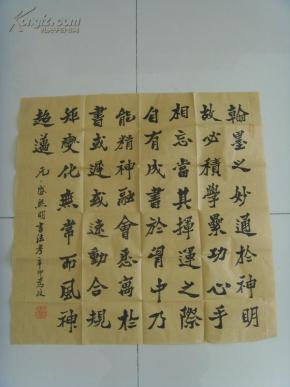 翰墨之妙通於神明
故必積學累功心手
相忘當其揮運之際
自有成書於胷中乃
能精神融會悉寓於
書或遲或速動合規
矩變化無常而風神
超邁
元盛熙明書法考辛卯